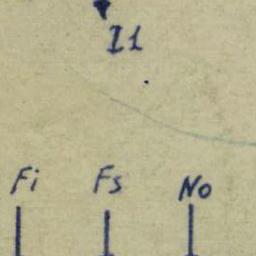 I1
Fi Fs No